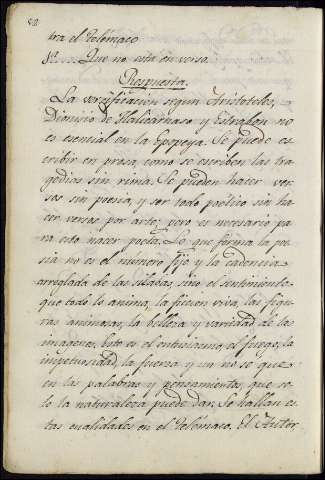 82
tra el Telemaco
1ª. Que no està en verso.
Respuesta.
La versificacion segun Aristoteles,
Dionisio de Halicarnaso y Estrabon no
es esencial en la Epopeya. Se puede es-
cribir en prosa, como se escriben las tra-
gedias sin rima. Se pueden hacer ver-
sos sin poesia, y ser todo poëtico sin ha-
cer versos por arte; pero es necesario pa-
ra esto nacer poeta. Lo que forma la poe-
sia no es el numero fijo y la cadencia
arreglada de las silabas, sino el sentimiento
que todo lo anima, la ficcion viva, las figu-
ras animosas, la belleza y variedad de las
imagenes. Esto es el entusiasmo, el fuego, la
impetuosidad, la fuerza y un no se que
en las palabras y pensamientos, que so-
lo la naturaleza puede dar. Se hallan es-
tas cualidades en el Telemaco. El Autor